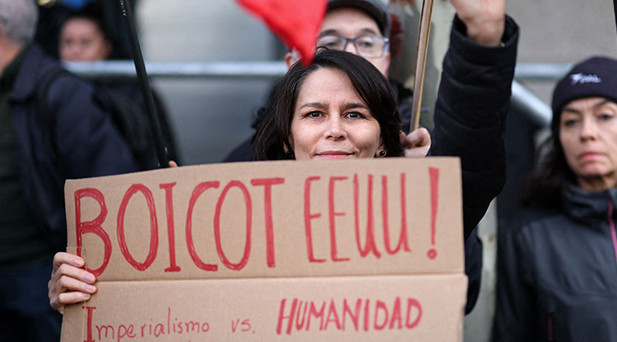 BOICOT EEUU!
Imperialismo vs. HUMANIDAD